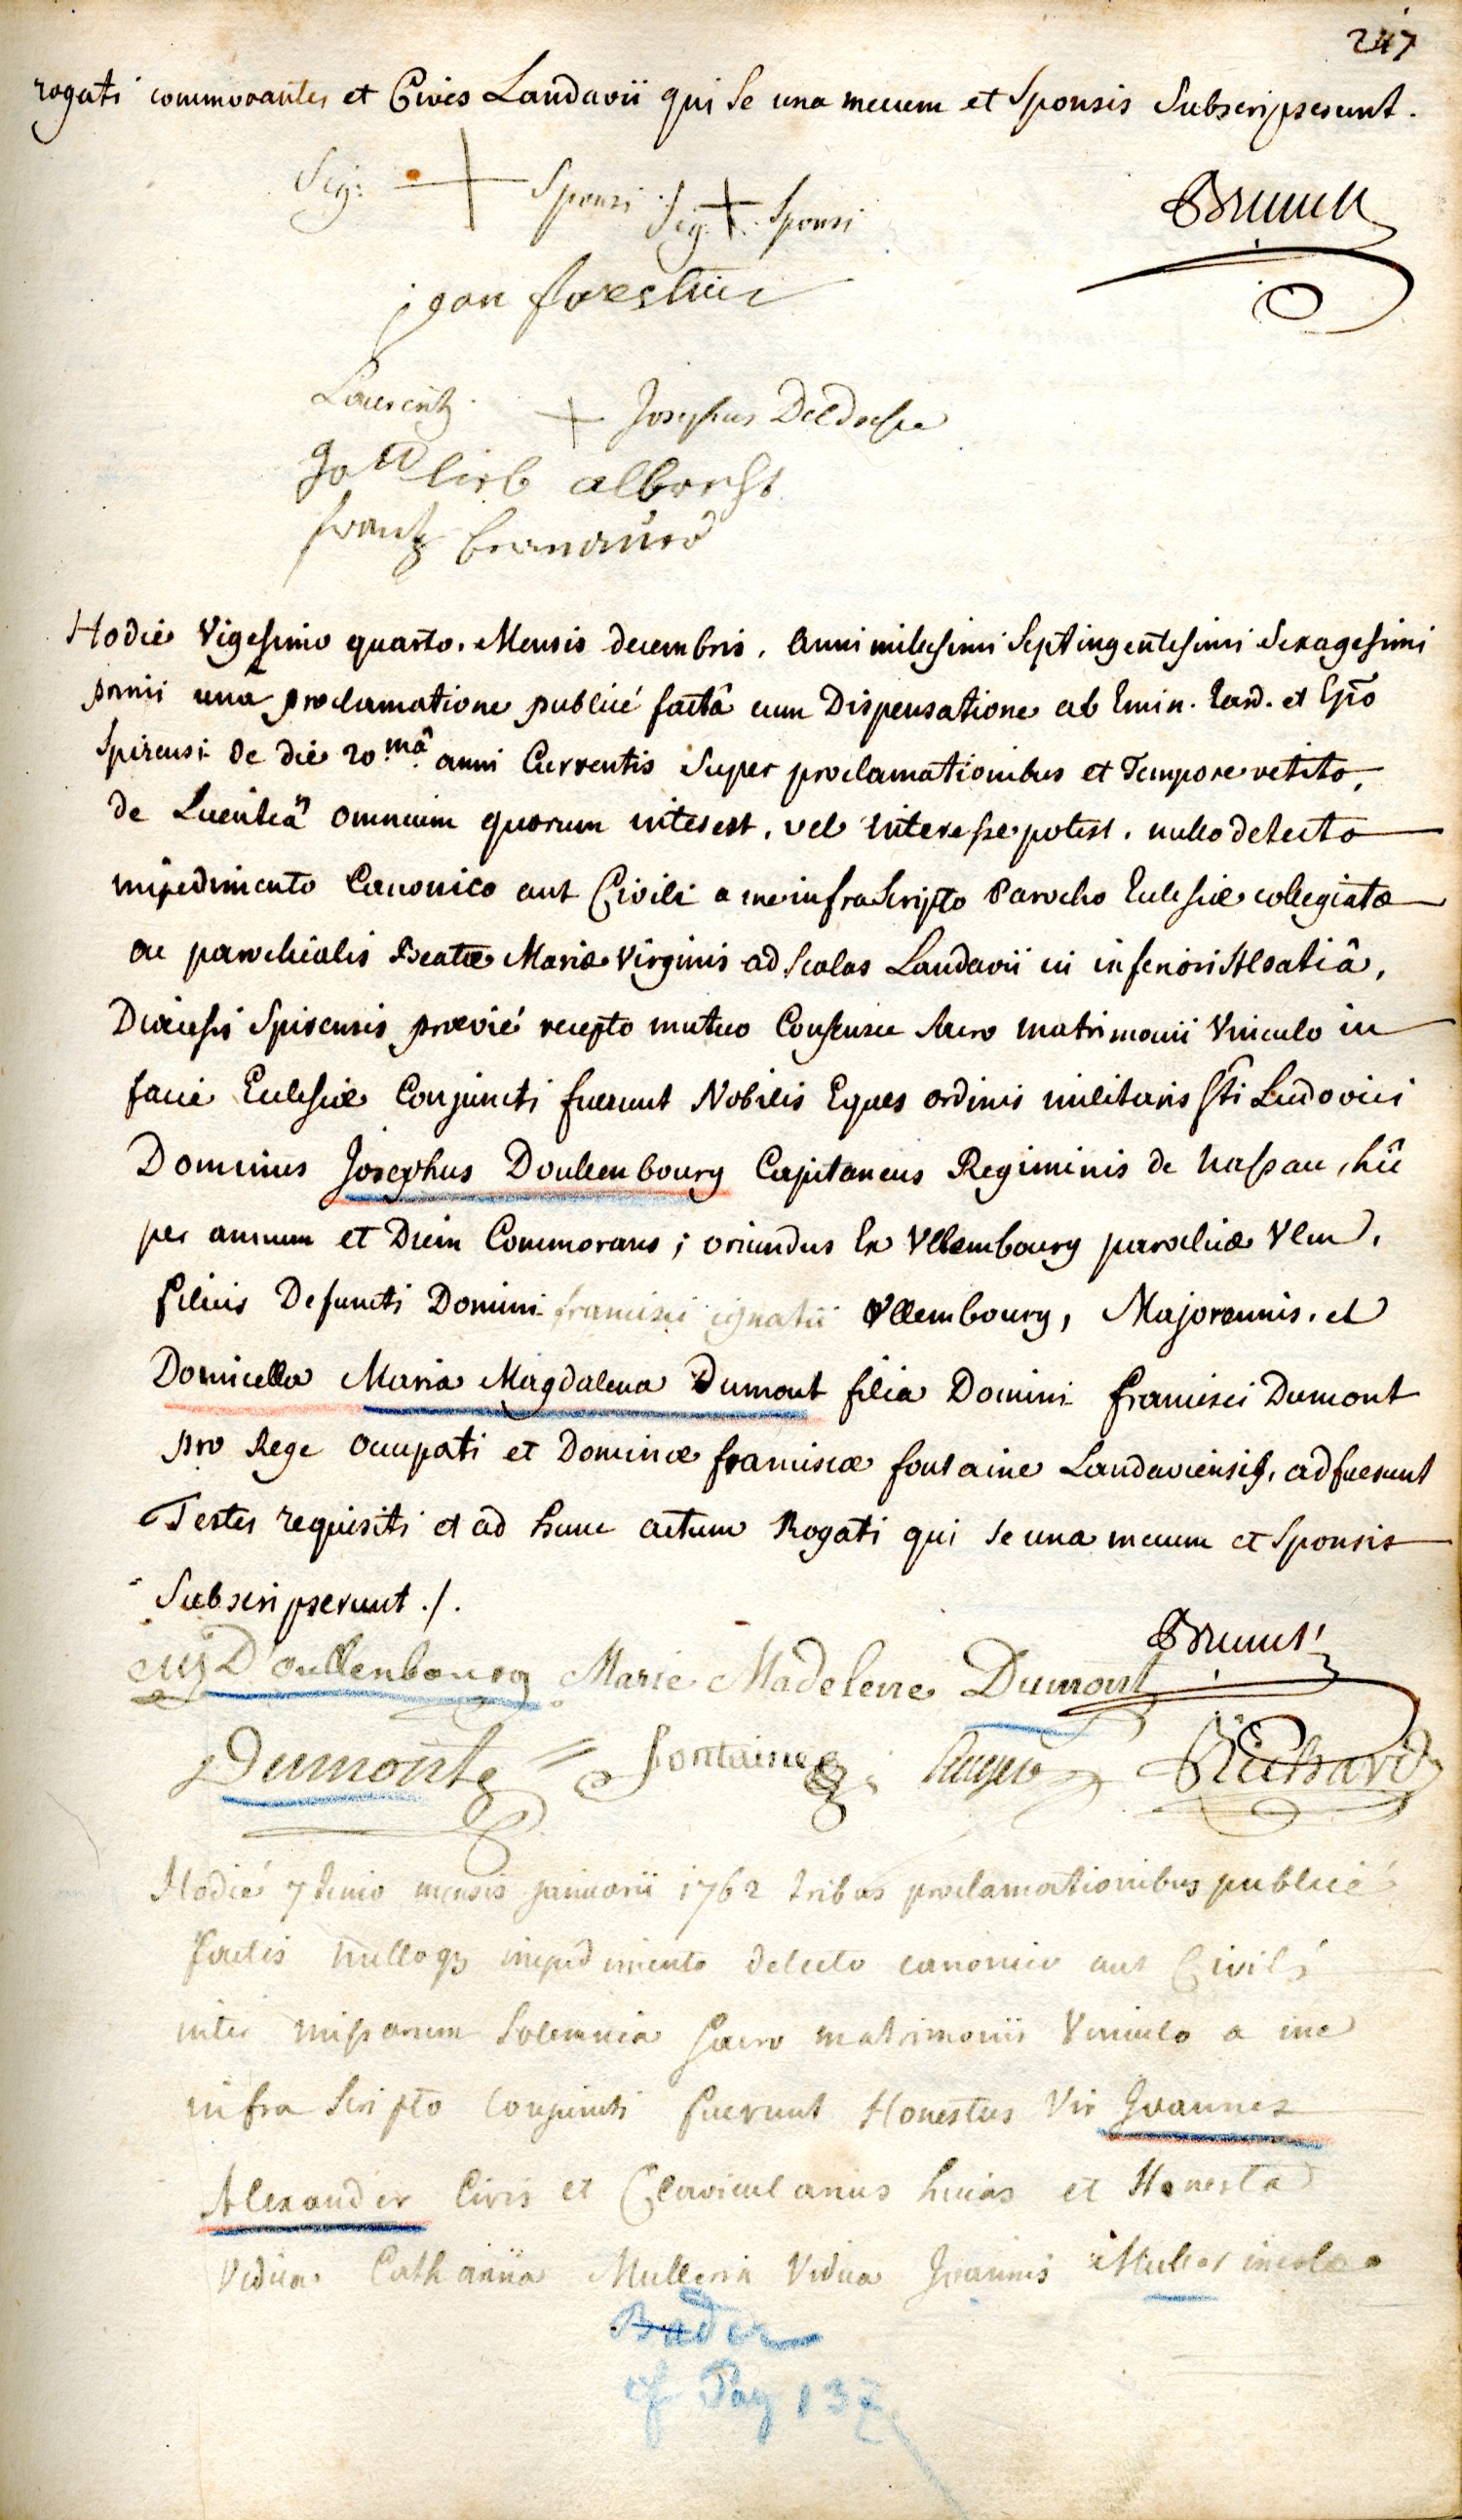 247
rogati commorantes et Cives Landavii qui se una mecum et Sponsis Subscripserunt.
Sig: + Sponsi Sig. + Sponsi
Brunck
jean forestier
Laurentz + Josephus
gottlieb albrecht
frantz
Hodie Vigesimo quarto. Mensis decembris. Anni millesimi Septingentesimi Sexagesimi
primi unâ proclamatione publicé factâ cum Dispensatione ab Emin. Card. et Epõ
Spirensi de die 20.mâ anni Currentis Super proclamationibus et Tempore vetito,
de Licentiâ omnium quorum interest, vel interesse potest. nullo detecto
impedimento Canonico aut Civili a me infra Scripto Parocho Ecclesiæ collegiatæ
ac parochialis Beatæ Mariæ Virginis ad Scalas Landavii in inferiori Alsatiâ,
Diœcesis Spirensis prævié recepto mutuo Consensu Sacro matrimonii Vinculo in
facie Ecclesiæ Conjuncti fuerunt Nobilis Eques ordinis militaris Sti Ludovici
Dominus Josephus Doullenbourg Capitaneus Regiminis de Nassau, hîc
per annum et Diem Commorans; oriundus Ex Ullembourg parochiæ Ulm,
filius Defuncti Domini francisci ignatii Ullembourg, Majorennis. et
Domicella Maria Magdalena Dumont filia Domini francisci Dumont
pro Rege occupati et Dominæ franciscæ fontaine Landaviensis, adfuerunt
Testes requisiti et ad hunc actum Rogati qui se una mecum et Sponsis
Subscripserunt ./.
Brunck
D'oullenbourg Marie Madelene Dumont
Dumont fontaine Richard
Hodié 7timo mensis januarii 1762 tribus proclamationibus publicé
factis nulloq3 impedimento detecto canonico aut Civili
inter missarum Solemnia Sacro matrimonii Vinculo a me
infra Scripto Conjuncti fuerunt Honestus Vir Joannes
Alexander Civis et Clavicularius huias et Honesta
Vidua Catharina Mullerin Vidua Joannis Muller incolæ
Bader
cf Pag 137